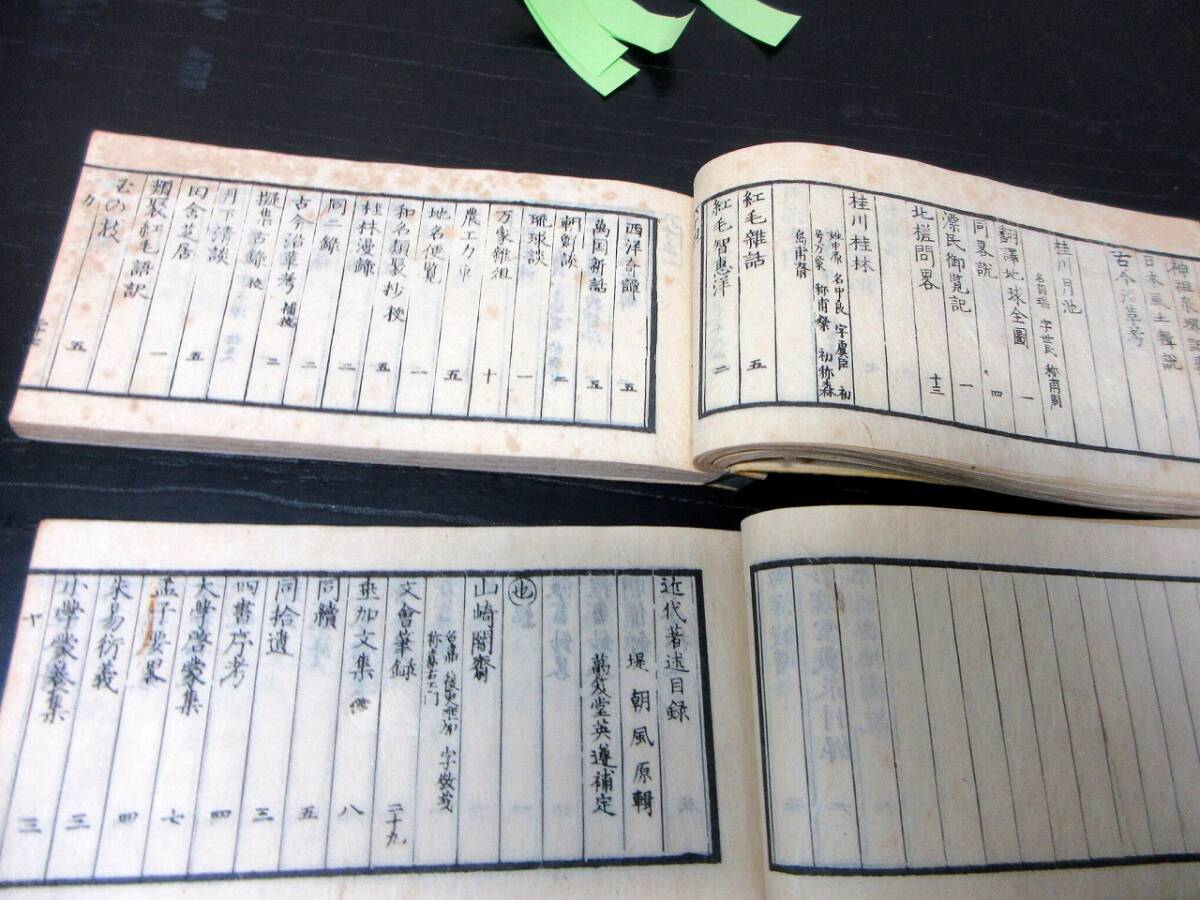 日本風土聲説
古今沿革考
桂川月池
名国瑞 字世民 称甫周
翻譯地球全圖 一
同畧説 四
漂民御覧記 一
北槎問畧 十三
桂川桂林
姓中原 名中良 字虞臣 初
号万象 称甫粲 初称森
島甫斎
紅毛雜話 五
紅毛智惠洋 二
西洋奇譚 五
萬国新話 五
朝鮮談 二
琉球談 一
万象雜組 十
農工力車 五
地名便覧 一
和名類聚抄校 五
桂林漫録 二
同二録 二
古今沿革考 補校 二
擬告古録 校 二
月下清談
田舎芝居 五
類聚紅毛語訳 一
五
近代著述目録
堤朝風原輯
萬笈堂英遵補定
也
山崎闇齋
文會筆録 二十九
垂加文集 八
同續 五
同拾遺 三
四書序考 四
大學啓蒙集 七
孟子要畧 四
朱易衍義 三
小學蒙養集 三